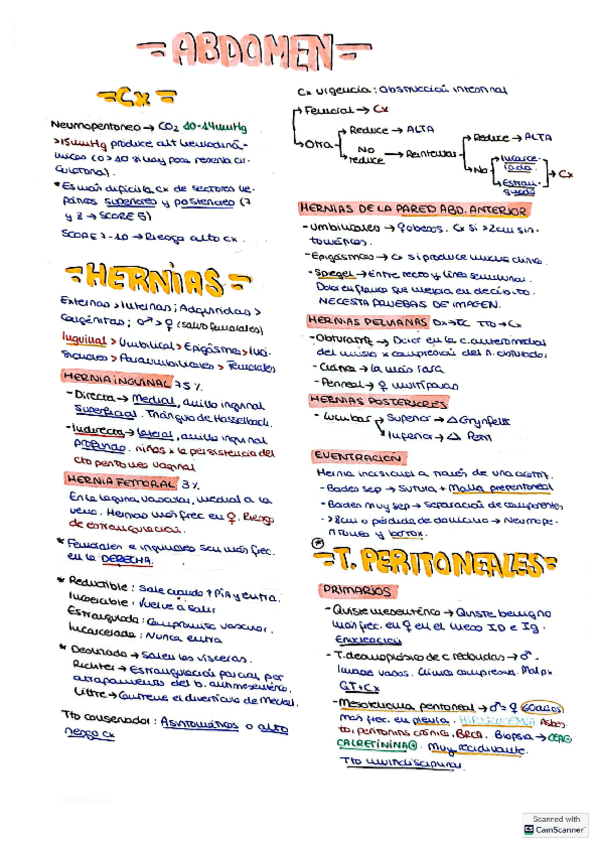 =ABDOMEN=
=Cx=
Neumoperitoneo → CO2 10-14mmHg
>15mmHg produce alt hemodiná-
micas (o >10 si hay poca reserva cir-
culatoria).
*Es más difícil la cx de sectores he-
páticos superiores y posteriores (7
y 8 → SCORE 5)
SCORE 7-10 → Riesgo alto cx.
=HERNIAS=
Externas > Internas; Adquiridas >
Congénitas; ♂ > ♀ (salvo femorales)
Inguinal > Umbilical > Epigástrica > Inci-
sionales > Paraumbilicales > Femorales
HERNIA INGUINAL 75%
-Directa → Medial, anillo inguinal
superficial. Triángulo de Hasselbach.
-Indirecta → lateral, anillo inguinal
profundo. niños x la persistencia del
cto peritoneo vaginal
HERNIA FEMORAL 3%
En la laguna vascular, medial a la
vena. Hernias más frec en ♀. Riesgo
de estrangulación.
*Femorales e inguinales son más frec.
en la DERECHA.
*Reductible: Sale cuando ↑PIA y entra.
Incoercible: Vuelve a salir
Estrangulada: Compromiso vascular.
Incarcelada: Nunca entra
*Deslizada → Salen las vísceras.
Richter → Estrangulación parcial por
atrapamiento del b. antimesentérico.
Littre → Contiene el divertículo de Meckel.
Tto conservador: Asintomáticos o alto
riesgo cx
Cx urgencia: Obstrucción intestinal
Femoral → Cx
Otra
Reduce → ALTA
No
reduce → Reintentar
Reduce → ALTA
No
Incarce-
rada
Estran-
gulada
→ Cx
HERNIAS DE LA PARED ABD. ANTERIOR
-Umbilicales → ♀ obesas. Cx si >2cm sin-
tomáticos.
-Epigástricas → Cx si produce mucha clínica.
-Spiegel → Entre recto y línea semilunar.
Dolor en flanco que mejora en decúbito.
NECESITA PRUEBAS DE IMAGEN.
HERNIAS PELVIANAS Dx → TC Tto → Cx
-Obturatriz → Dolor en la c. anteromedial
del muslo x compresión del n. obturador
-Ciática → la más rara
-Perineal → ♀ multíparas
HERNIAS POSTERIORES
-Lumbar
Superior → △ Grynfelt
Inferior → △ Petit
EVENTRACION
Hernia incisional a través de una
-Bordes sep → Sutura + Malla preperitoneal
-Bordes muy sep → Separación de componentes
->8cm o pérdida de domicilio → Neumope-
ritoneo y botox.
=T. PERITONEALES=
PRIMARIOS
-Quiste mesentérico → Quiste benigno
más frec. en ♀ en el meso ID e Ig.
Enucleación
-T. desmoplásico de c redondas → ♂.
Invade vasos. Clínica compresiva. Mal px
QT+Cx
-Mesotelioma peritoneal → ♂>♀ 60 años
más frec. en pleura. HIPOGLUCEMIA Asbes-
to, peritonitis crónica, BRCA. Biopsia → CEA⊖
CALRETININA⊕. Muy recidivante.
Tto multidisciplinar
Scanned with
CamScanner